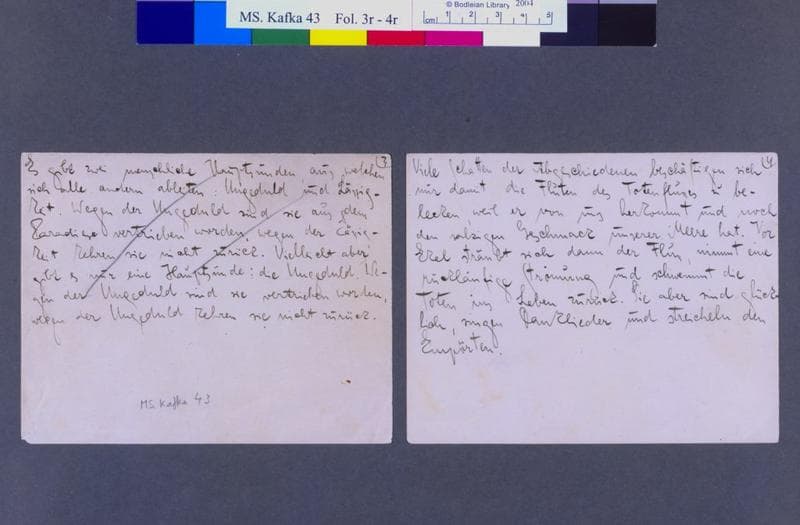 MS. Kafka 43 Fol. 3r - 4r
© Bodleian Library 2004
cm 1 2 3 4 5
3
Es gibt zwei menschliche Hauptsünden, aus welchen
sich alle andern ableiten: Ungeduld und Lässig-
keit. Wegen der Ungeduld sind sie aus dem
Paradiese vertrieben worden, wegen der Lässig-
keit kehren sie nicht zurück. Vielleicht aber
gibt es nur eine Hauptsünde: die Ungeduld. We-
gen der Ungeduld sind sie vertrieben worden,
wegen der Ungeduld kehren sie nicht zurück.
MS. Kafka 43
4
Viele Schatten der Abgeschiedenen beschäftigen sich
nur damit die Fluten des Totenflusses zu be-
lecken, weil er von uns herkommt und noch
den salzigen Geschmack unserer Meere hat. Vor
Ekel sträubt sich dann der Fluss, nimmt eine
rückläufige Strömung und schwemmt die
Toten ins Leben zurück. Sie aber sind glück-
lich, singen Danklieder und streicheln den
Empörten.